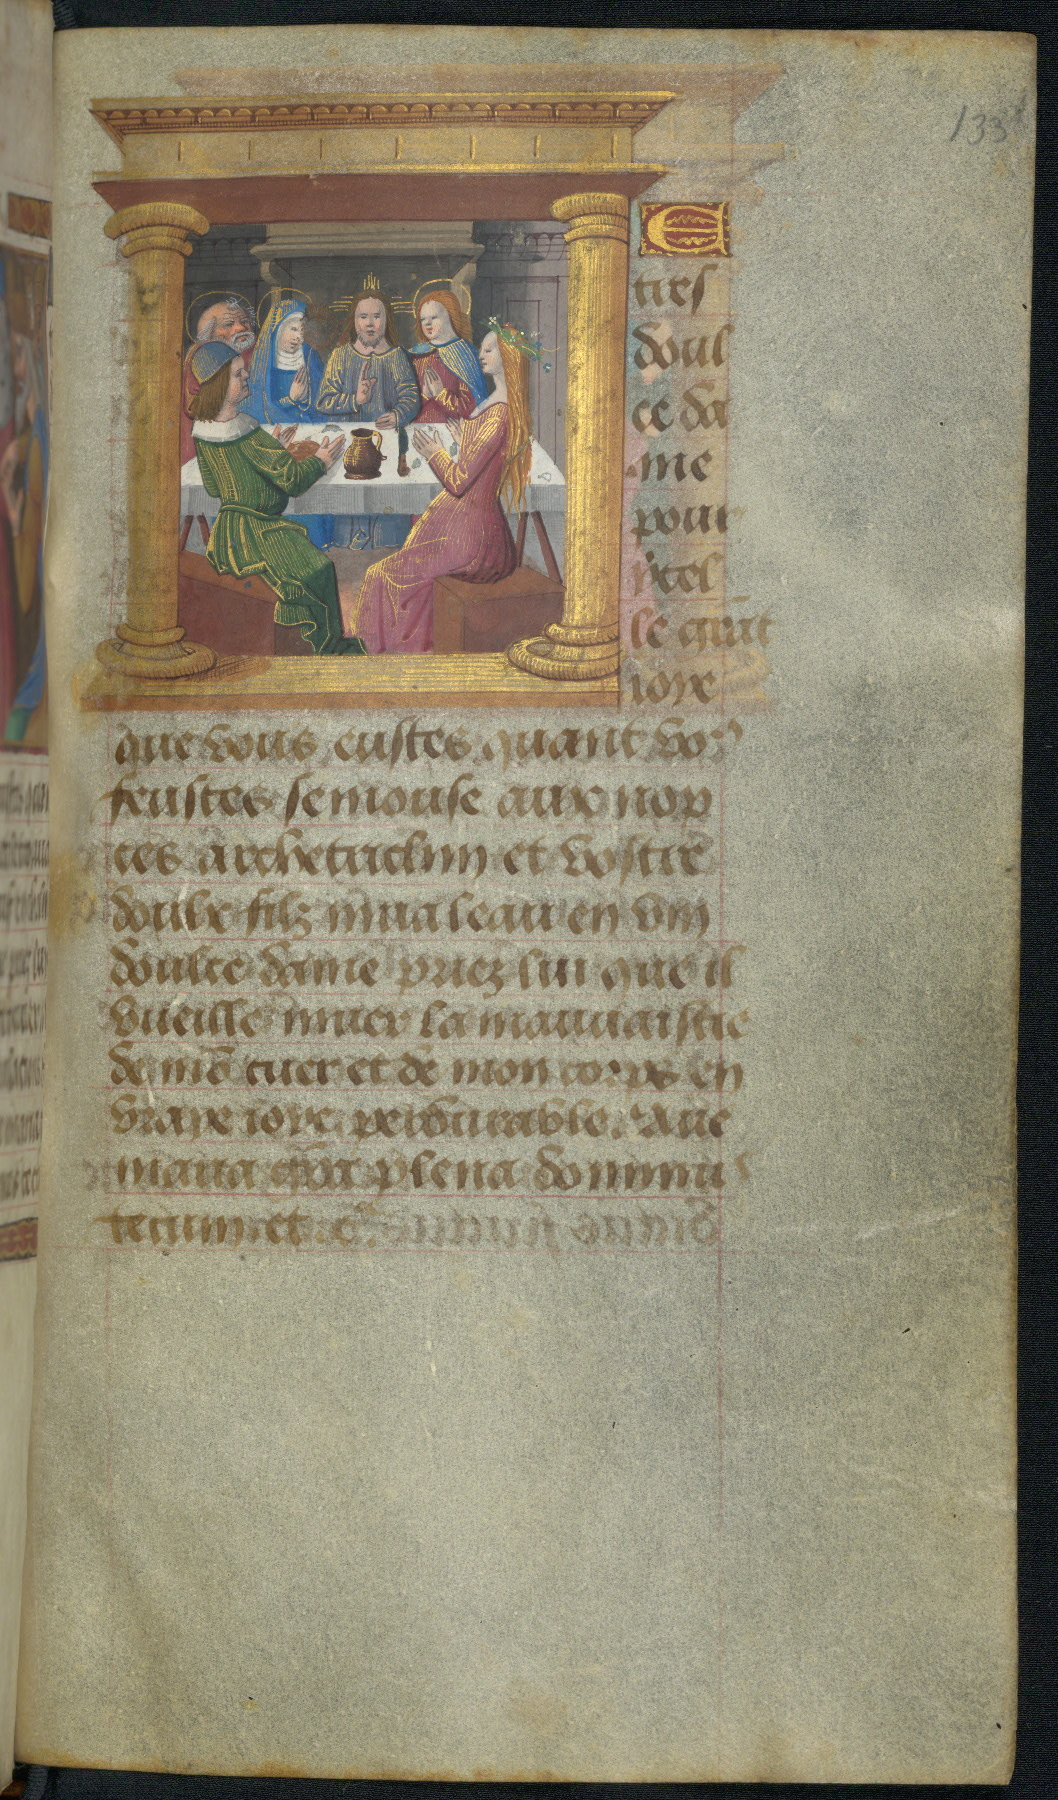 133
E
tres
doul
ce da
me
pour
icel
le grāt
ioye
que vous eustes quant vo9
feustes semonse aux nop
ces archetriclin et vostre
doulx filz mua leau en vin
doulce dame priez lui que il
vueille muer la mauuaistie
de mō cuer et de mon corps en
vraye ioye pardurable. Aue
maria grā plena dominus
tecum. et c̄.